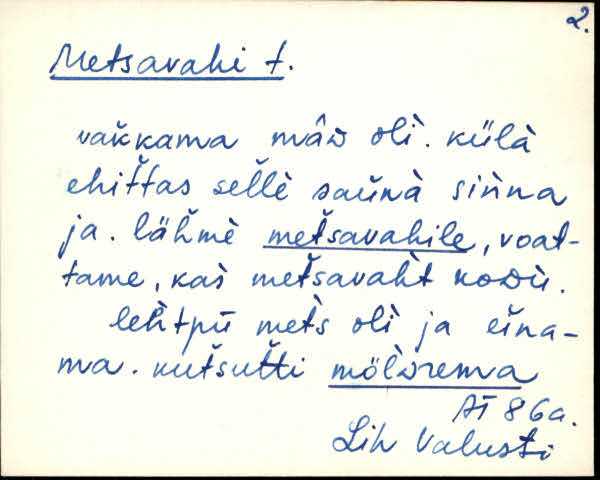 2.
Metsavahi t.
vak̆kama mâᴅ olì. külà
ehit̆tas sel̆lè saŭnà siǹna
ja. läh̆mè met̆savahile, voat-
tame, kas̀ met̆savah̀t koᴅù.
leh̀tpū met̀s olì ja eĭna-
ma. kut̆sut̆ti möl̀ᴅrema
AT 86a.
Lih Valusti